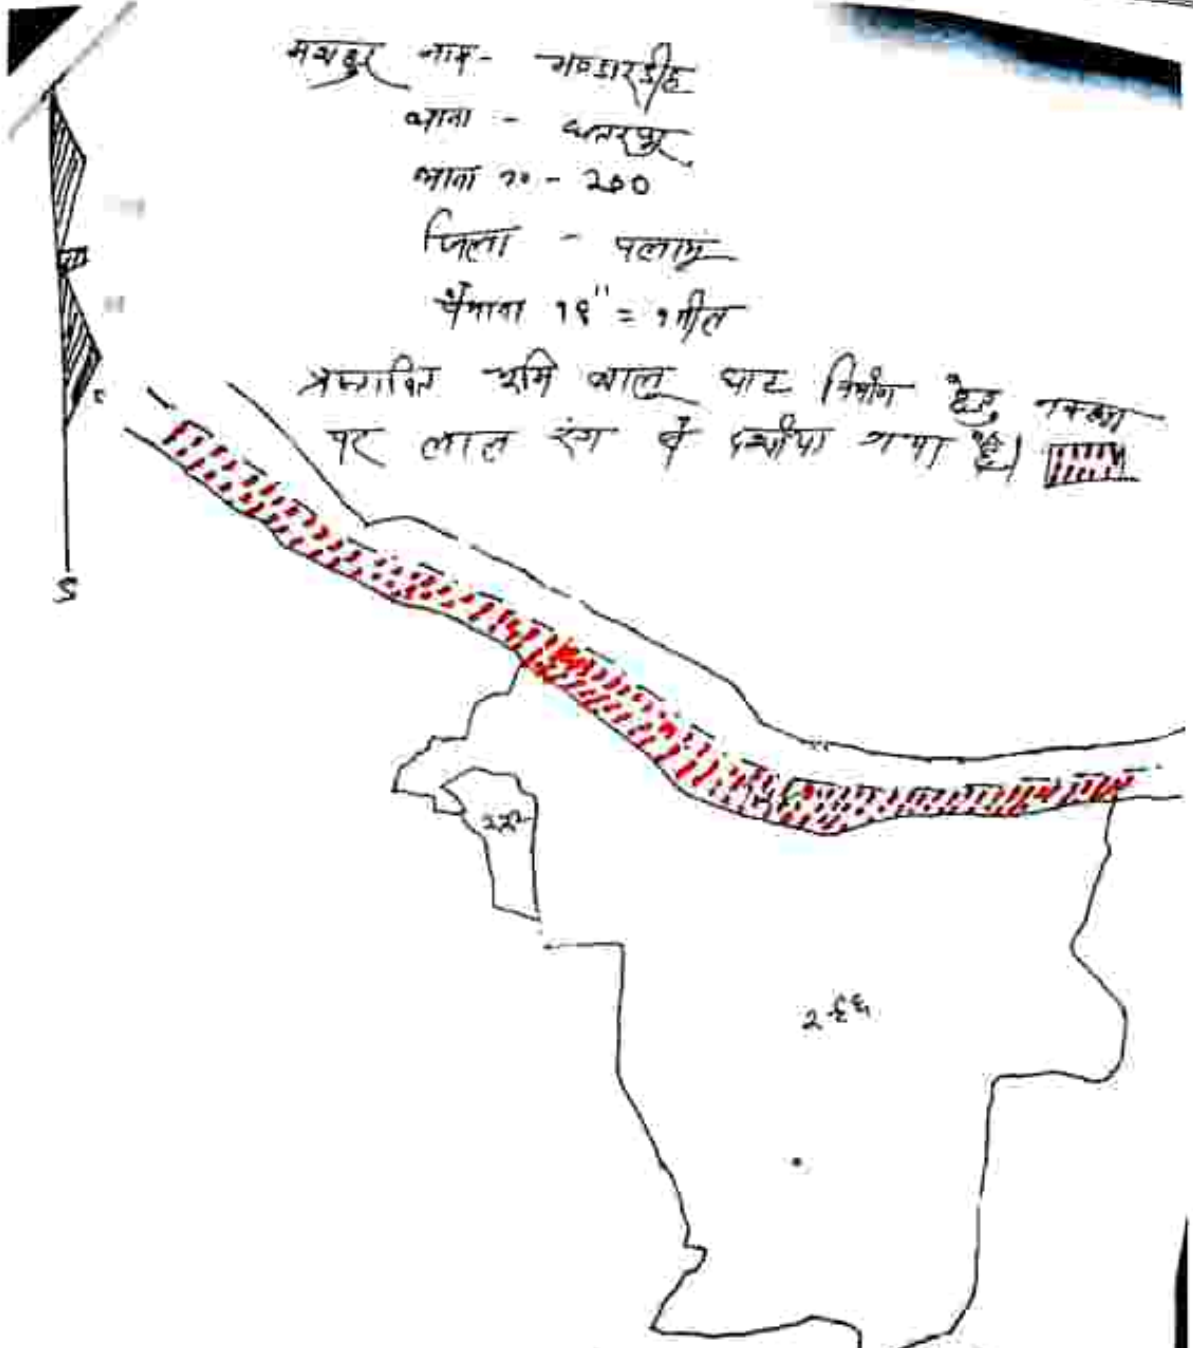 नाम - भण्डारडीह
थाना - छतरपुर
थाना न० - २००
जिला - पलामू
पैमाना १६" = १ मील
भूमि बालु घाट निर्माण हेतु नक्शा
पर लाल रंग से दर्शाया गया है।
S
२६६